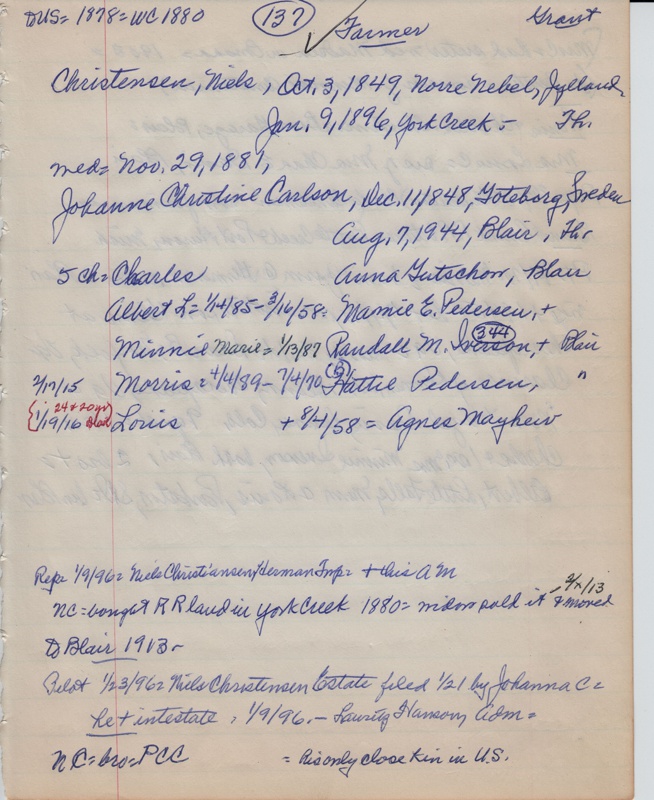 DUS= 1878= WC 1880 (137) Farmer Grant
Christensen, Niels, Oct. 3, 1849, Norre Nebel, Jylland
Jan. 9, 1896, York Creek - Th.
med= Nov. 29, 1881,
Johanne Christine Carlson, Dec. 11/848, Goteborg, Sweden
Aug, 7, 1944, Blair, Th.
5 ch= Charles Anna Gutschow, Blair
Albert L= 1/14/85 - 3/16/58= Mamie E. Pedersen, +
Minnie Marie= 1/13/87 Randall M. Iverson, + Blair
344
2/17/15 Morris= 4/4/89 - 7/4/70 Hattie Pedersen, "
{1/19/16 24 & 20 yr Louis + 8/4/58 = Agnes Mayhew
Rep= 1/9/96= Niels Christiansen, Herman Twp= + this AM
NC= bought RR land in York Creek 1880= widow sold it & moved
to Blair 1913-
Pilot 1/23/96= Niels Christensen Estate filed 1/21 by Johanna C=
he + intestate = 1/9/96. - Lauritz Hanson, Adm=
NC= bro= PCC = his only close kin in U.S.